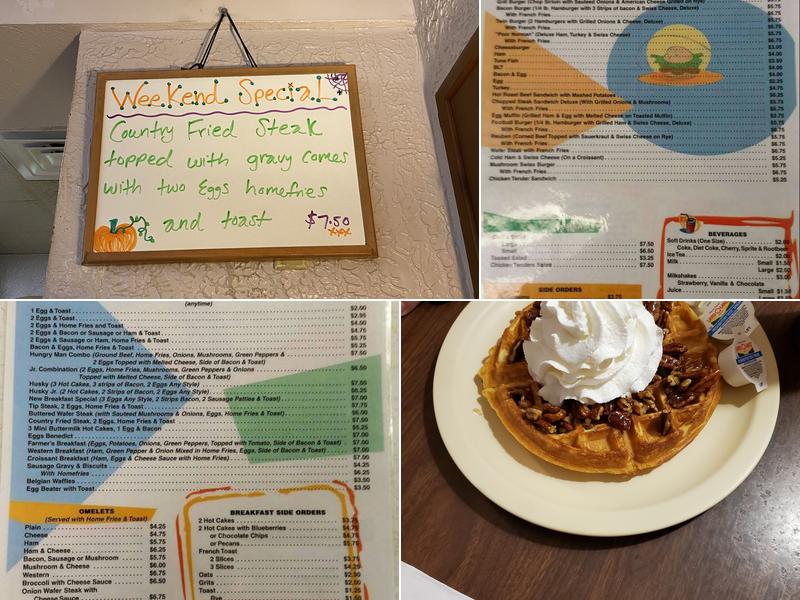 WeeKend Special
Country Fried Steak
topped with gravy comes
with two Eggs homefries
and toast $7.50
xxx
Grill Burger (Chop Sirloin with Sauteed Onions & American Cheese Grilled on Rye)
With French Fries
Twin Burger (2 Hamburgers with Grilled Onions & Cheese, Deluxe)
With French Fries
"Poor Norman" (Deluxe Ham, Turkey & Swiss Cheese)
With French Fries
Cheeseburger
Ham
Tuna Fish
BLT
Bacon & Egg
Egg
Turkey
Hot Roast Beef Sandwich with Mashed Potatoes
Chopped Steak Sandwich Deluxe (With Grilled Onions & Mushrooms)
With French Fries
Egg Muffin (Grilled Ham & Egg with Melted Cheese on Toasted Muffin)
Football Burger (1/4 lb. Hamburger with Grilled Ham & Swiss Cheese, Deluxe)
With French Fries
Reuben (Corned Beef Topped with Sauerkraut & Swiss Cheese on Rye)
With French Fries
Wafer Steak with French Fries
Cold Ham & Swiss Cheese (On a Croissant)
Mushroom Swiss Burger
With French Fries
Chicken Tender Sandwich $5.25
Large $7.50
Small $6.50
Tossed Salad $3.25
Chicken Tenders Salad $7.50
SIDE ORDERS
BEVERAGES
Soft Drinks (One Size)
Coke, Diet Coke, Cherry, Sprite & Rootbeer
Ice Tea
Milk Small
Large
Milkshakes
Strawberry, Vanilla & Chocolate
Juice Small
(anytime)
1 Egg & Toast $2.00
2 Eggs & Toast $2.50
2 Eggs & Home Fries and Toast $4.00
2 Eggs & Bacon or Sausage or Ham & Toast $4.75
2 Eggs & Bacon or Sausage or Ham, Home Fries & Toast $5.75
Bacon & Eggs, Home Fries & Toast $5.75
Hungry Man Combo (Ground Beef, Home Fries, Onions, Mushrooms, Green Peppers & $7.50
2 Eggs Topped with Melted Cheese, Side of Bacon & Toast)
Jr. Combination (2 Eggs, Home Fries, Mushrooms, Green Peppers & Onions $6.50
Topped with Melted Cheese, Side of Bacon & Toast)
Husky (3 Hot Cakes, 3 strips of Bacon, 2 Eggs Any Style) $7.50
Husky Jr. (2 Hot Cakes, 2 Strips of Bacon, 2 Eggs Any Style) $6.25
New Breakfast Special (3 Eggs Any Style, 2 Strips Bacon, 2 Sausage Patties & Toast) $7.00
Tip Steak, 2 Eggs, Home Fries & Toast $7.75
Buttered Wafer Steak with Sauteed Mushrooms & Onions, Eggs, Home Fries & Toast
Country Fried Steak, 2 Eggs, Home Fries & Toast
3 Mini Buttermilk Hot Cakes, 1 Egg & Bacon
Eggs Benedict
Farmer's Breakfast (Eggs, Potatoes, Onions, Green Peppers, Topped with Tomato, Side of Bacon & Toast)
Western Breakfast (Ham, Green Pepper & Onion Mixed in Home Fries, Eggs, Side of Bacon & Toast) $7.00
Croissant Breakfast (Ham, Eggs & Cheese Sauce with Home Fries) $7.00
Sausage Gravy & Biscuits $4.25
With Homefries $6.25
Belgian Waffles $3.50
Egg Beater with Toast $3.50
OMELETS
(Served with Home Fries & Toast)
Plain $4.25
Cheese $4.75
Ham $5.75
Ham & Cheese $6.25
Bacon, Sausage or Mushroom $5.75
Mushroom & Cheese $6.00
Western $6.75
Broccoli with Cheese Sauce $6.50
Onion Wafer Steak with
Cheese Sauce $6.75
BREAKFAST SIDE ORDERS
2 Hot Cakes $3.75
2 Hot Cakes with Blueberries $4.75
or Chocolate Chips
or Pecans $5.75
French Toast
2 Slices $3.75
3 Slices
Oats
Grits
Toast
Rye